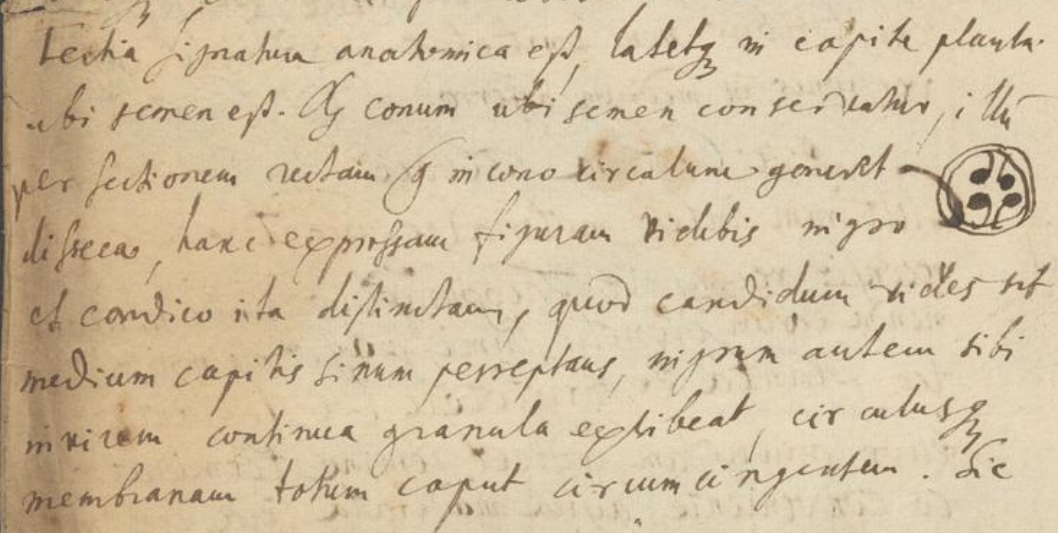 Tertia signatura anatomica est, latetq in capite planta.
ubi semen est. conum ubi semen conservatur, illũ
per sectionem rectam q in cono circulum generat
dissecas, hanc expressam figuram videbis nigro
et condico ita distinctam, quod candidum vides est
medium capitis sinum perreptans, nigrum autem sibi
invicem continua granula exhibeat, circulusq
membranam totum caput circumcingentem. Sic